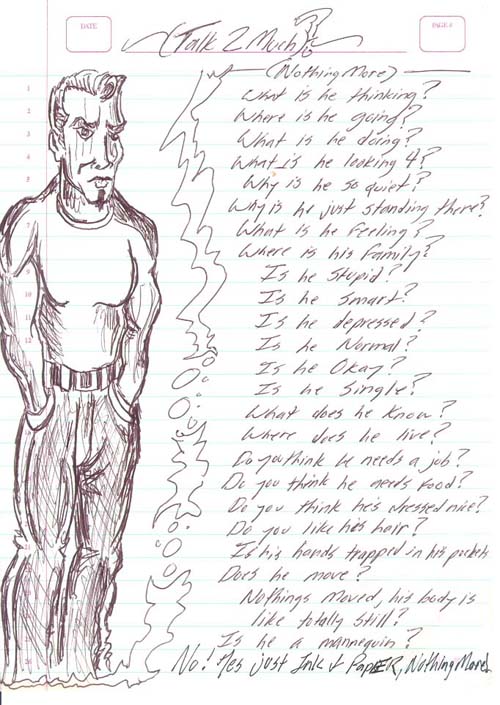 DATE
PAGE #
(Talk 2 Much)?
(Nothing More)
What is he thinking?
Where is he going?
What is he doing?
What is he looking 4?
Why is he so quiet?
Why is he just standing there?
What is he Feeling?
Where is his family?
Is he Stupid?
Is he Smart?
Is he depressed?
Is he Normal?
Is he Okay?
Is he Single?
What does he know?
Where does he live?
Do you think he needs a job?
Do you think he needs Food?
Do you think he's dressed nice?
Do you like he's hair?
Is his hands trapped in his pockets
Does he move?
Nothings moved, his body is
like totally still?
Is he a mannequin?
No! Hes just Ink & PapER, Nothing More!
1
2
3
4
5
8
9
10
11
12